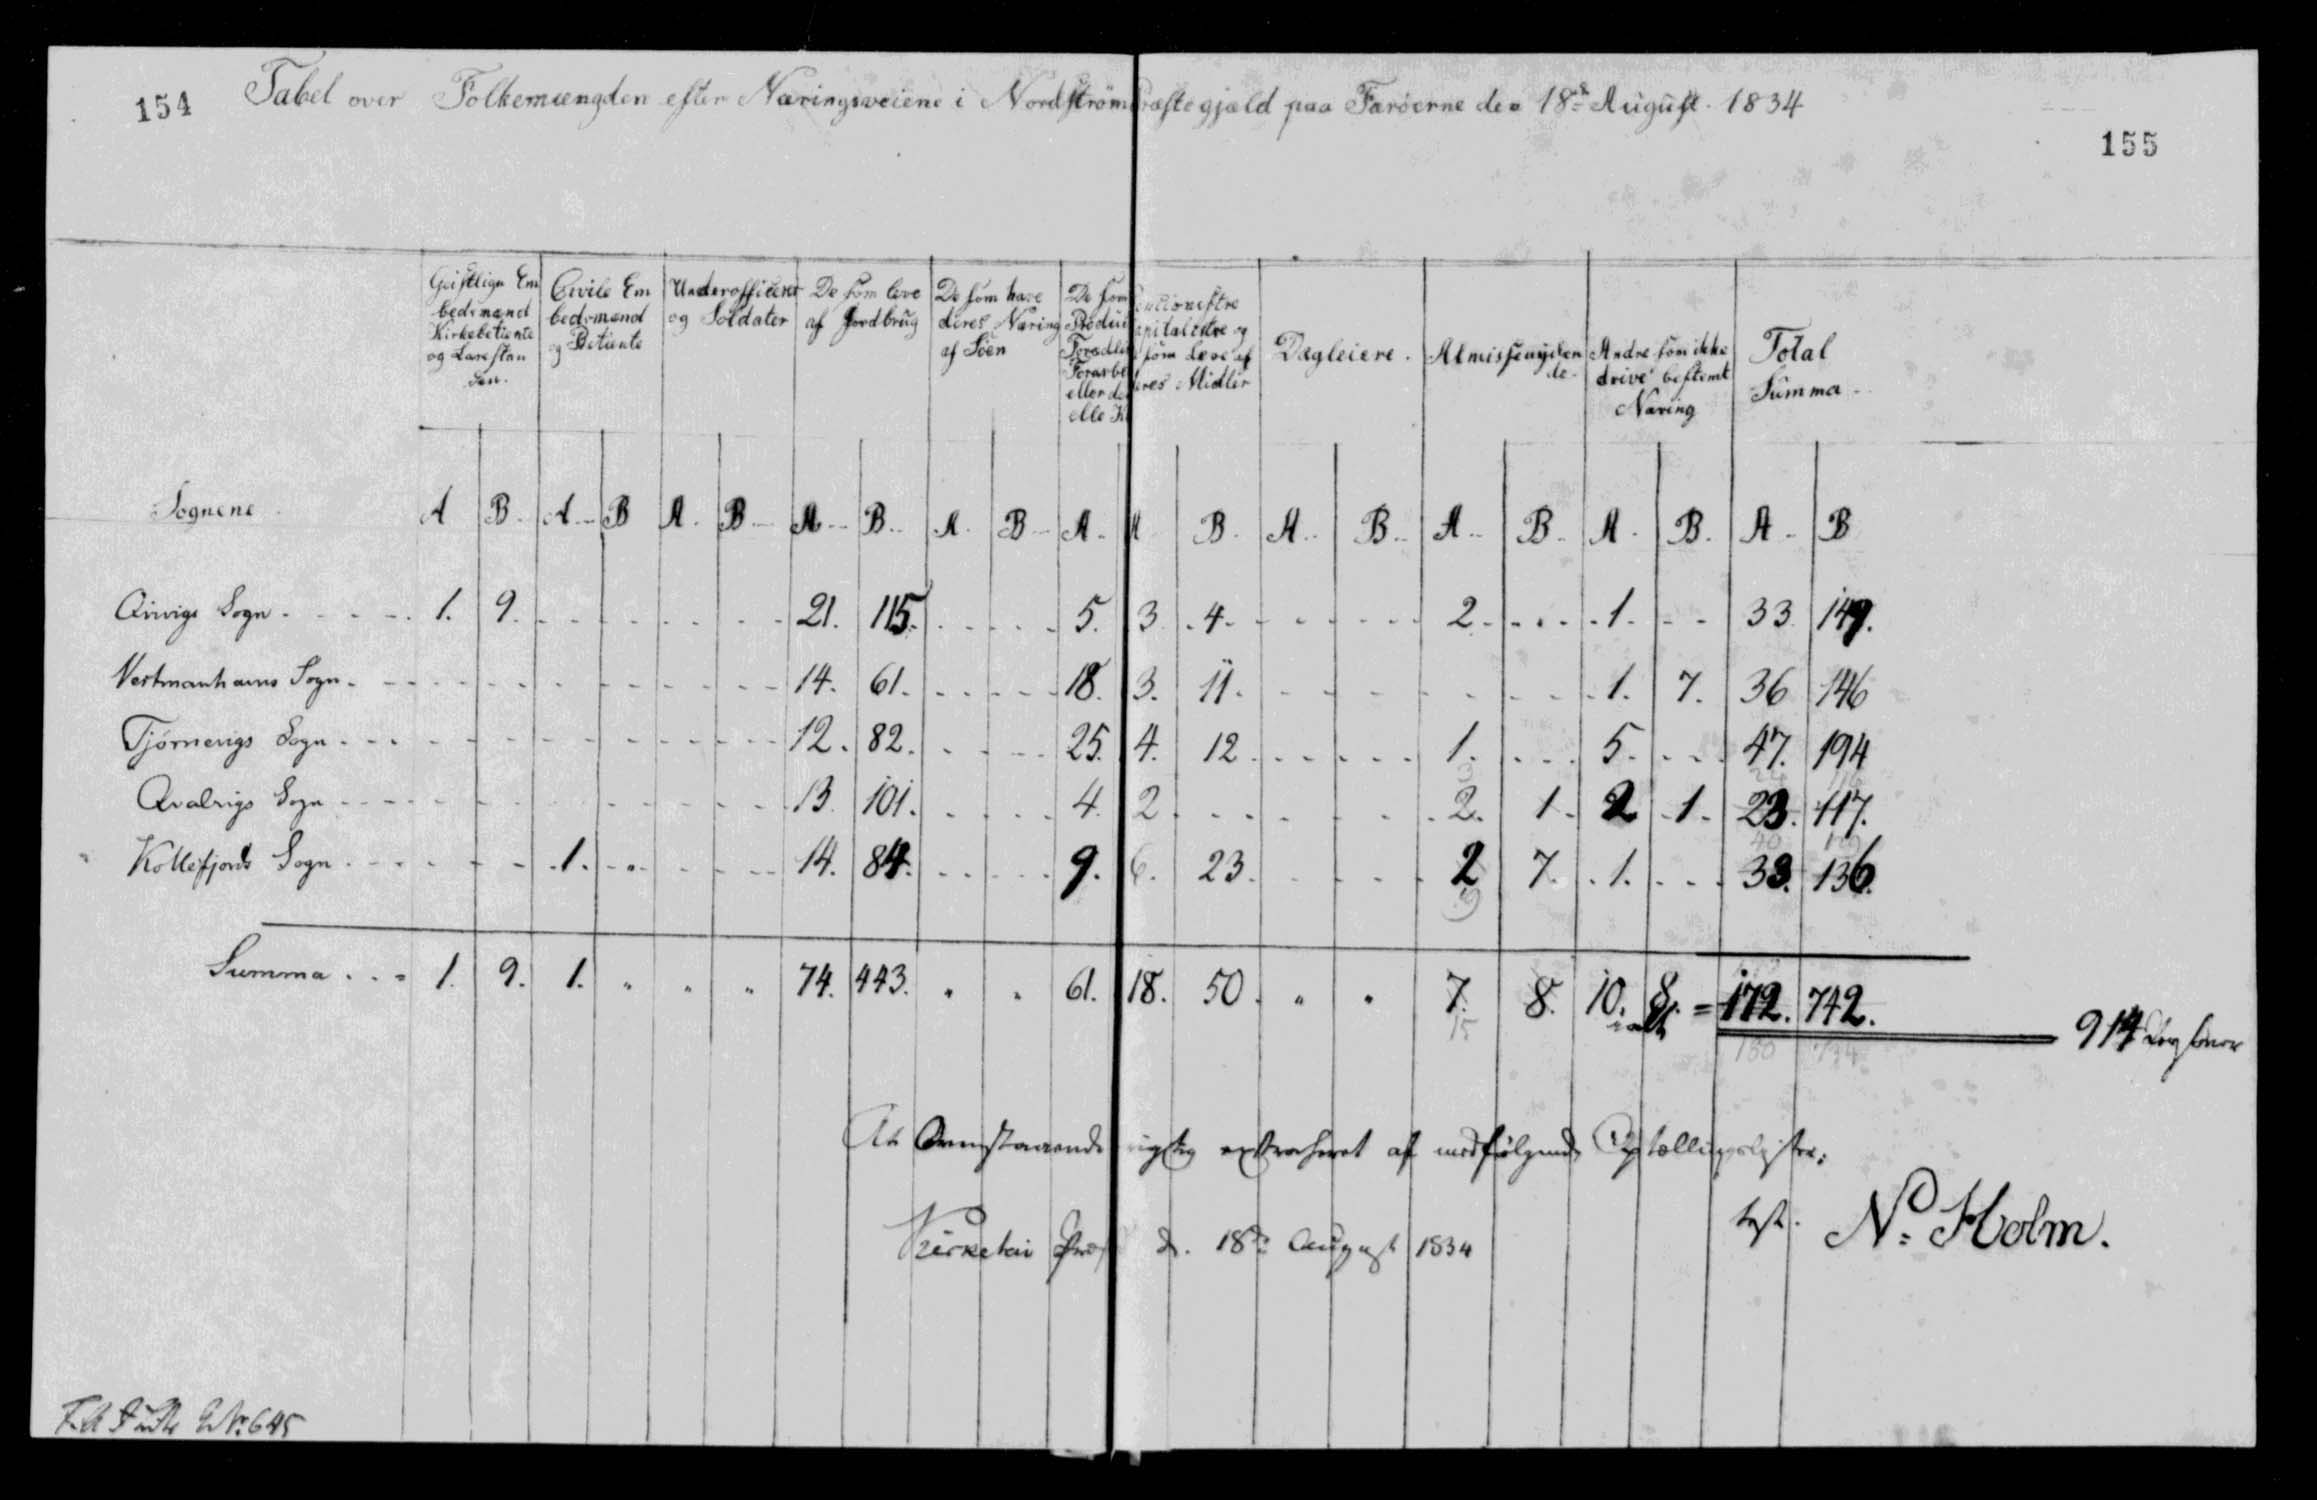 154
Tabel over Folkemængden efter Næringsveiene i Nordström Præstegjæld paa Færöerne den 18de August 1834
155
Geistlige Em
bedsmænd
Kirkebetiente
og Lærestan
den.
Civile Em
bedsmænd
og Betiente
Underofficerer
og Soldater
De som leve
af Jordbrug
De som have
deres Næring
af Söen
De som
Produc
Foradli
Forarbe
eller de
elle K
ensionistre
apitalister og
som Leve af
deres Midler
Dagleiere.
Almissenyden
de.
Andre som ikke
drive bestemt
Næring
Total
Summa.
Sognene A B. A. B A. B A. B. A. B A. A B. A. B. A. B. A. B. A. B
Qvivigs Sogn 1. 9. 21. 115. 5. 3. 4. 2. 1. 33. 149.
Vestmanhavns Sogn. 14. 61. 18. 3. 11. 1. 7. 36 146
Tjörnevigs Sogn 12. 82. 25. 4. 12 1. 5. 47. 194
Qvalvigs Sogn 13. 101. 4. 2 2. 1. 2 1. 23. 117.
Kollefjords Sogn 1. 14. 84. 9. 6. 23. 2 7. 1. 33. 136.
Summa 1. 9. 1. " " " 74. 443. " " 61. 18. 50. " " 7. 8. 10. 8. = 172. 742.
15
914
At Ovenstaaende rigtig extraheret af medfølgende Optællingslister;
d. 18de August 1834
test. N: Holm.
No: 645